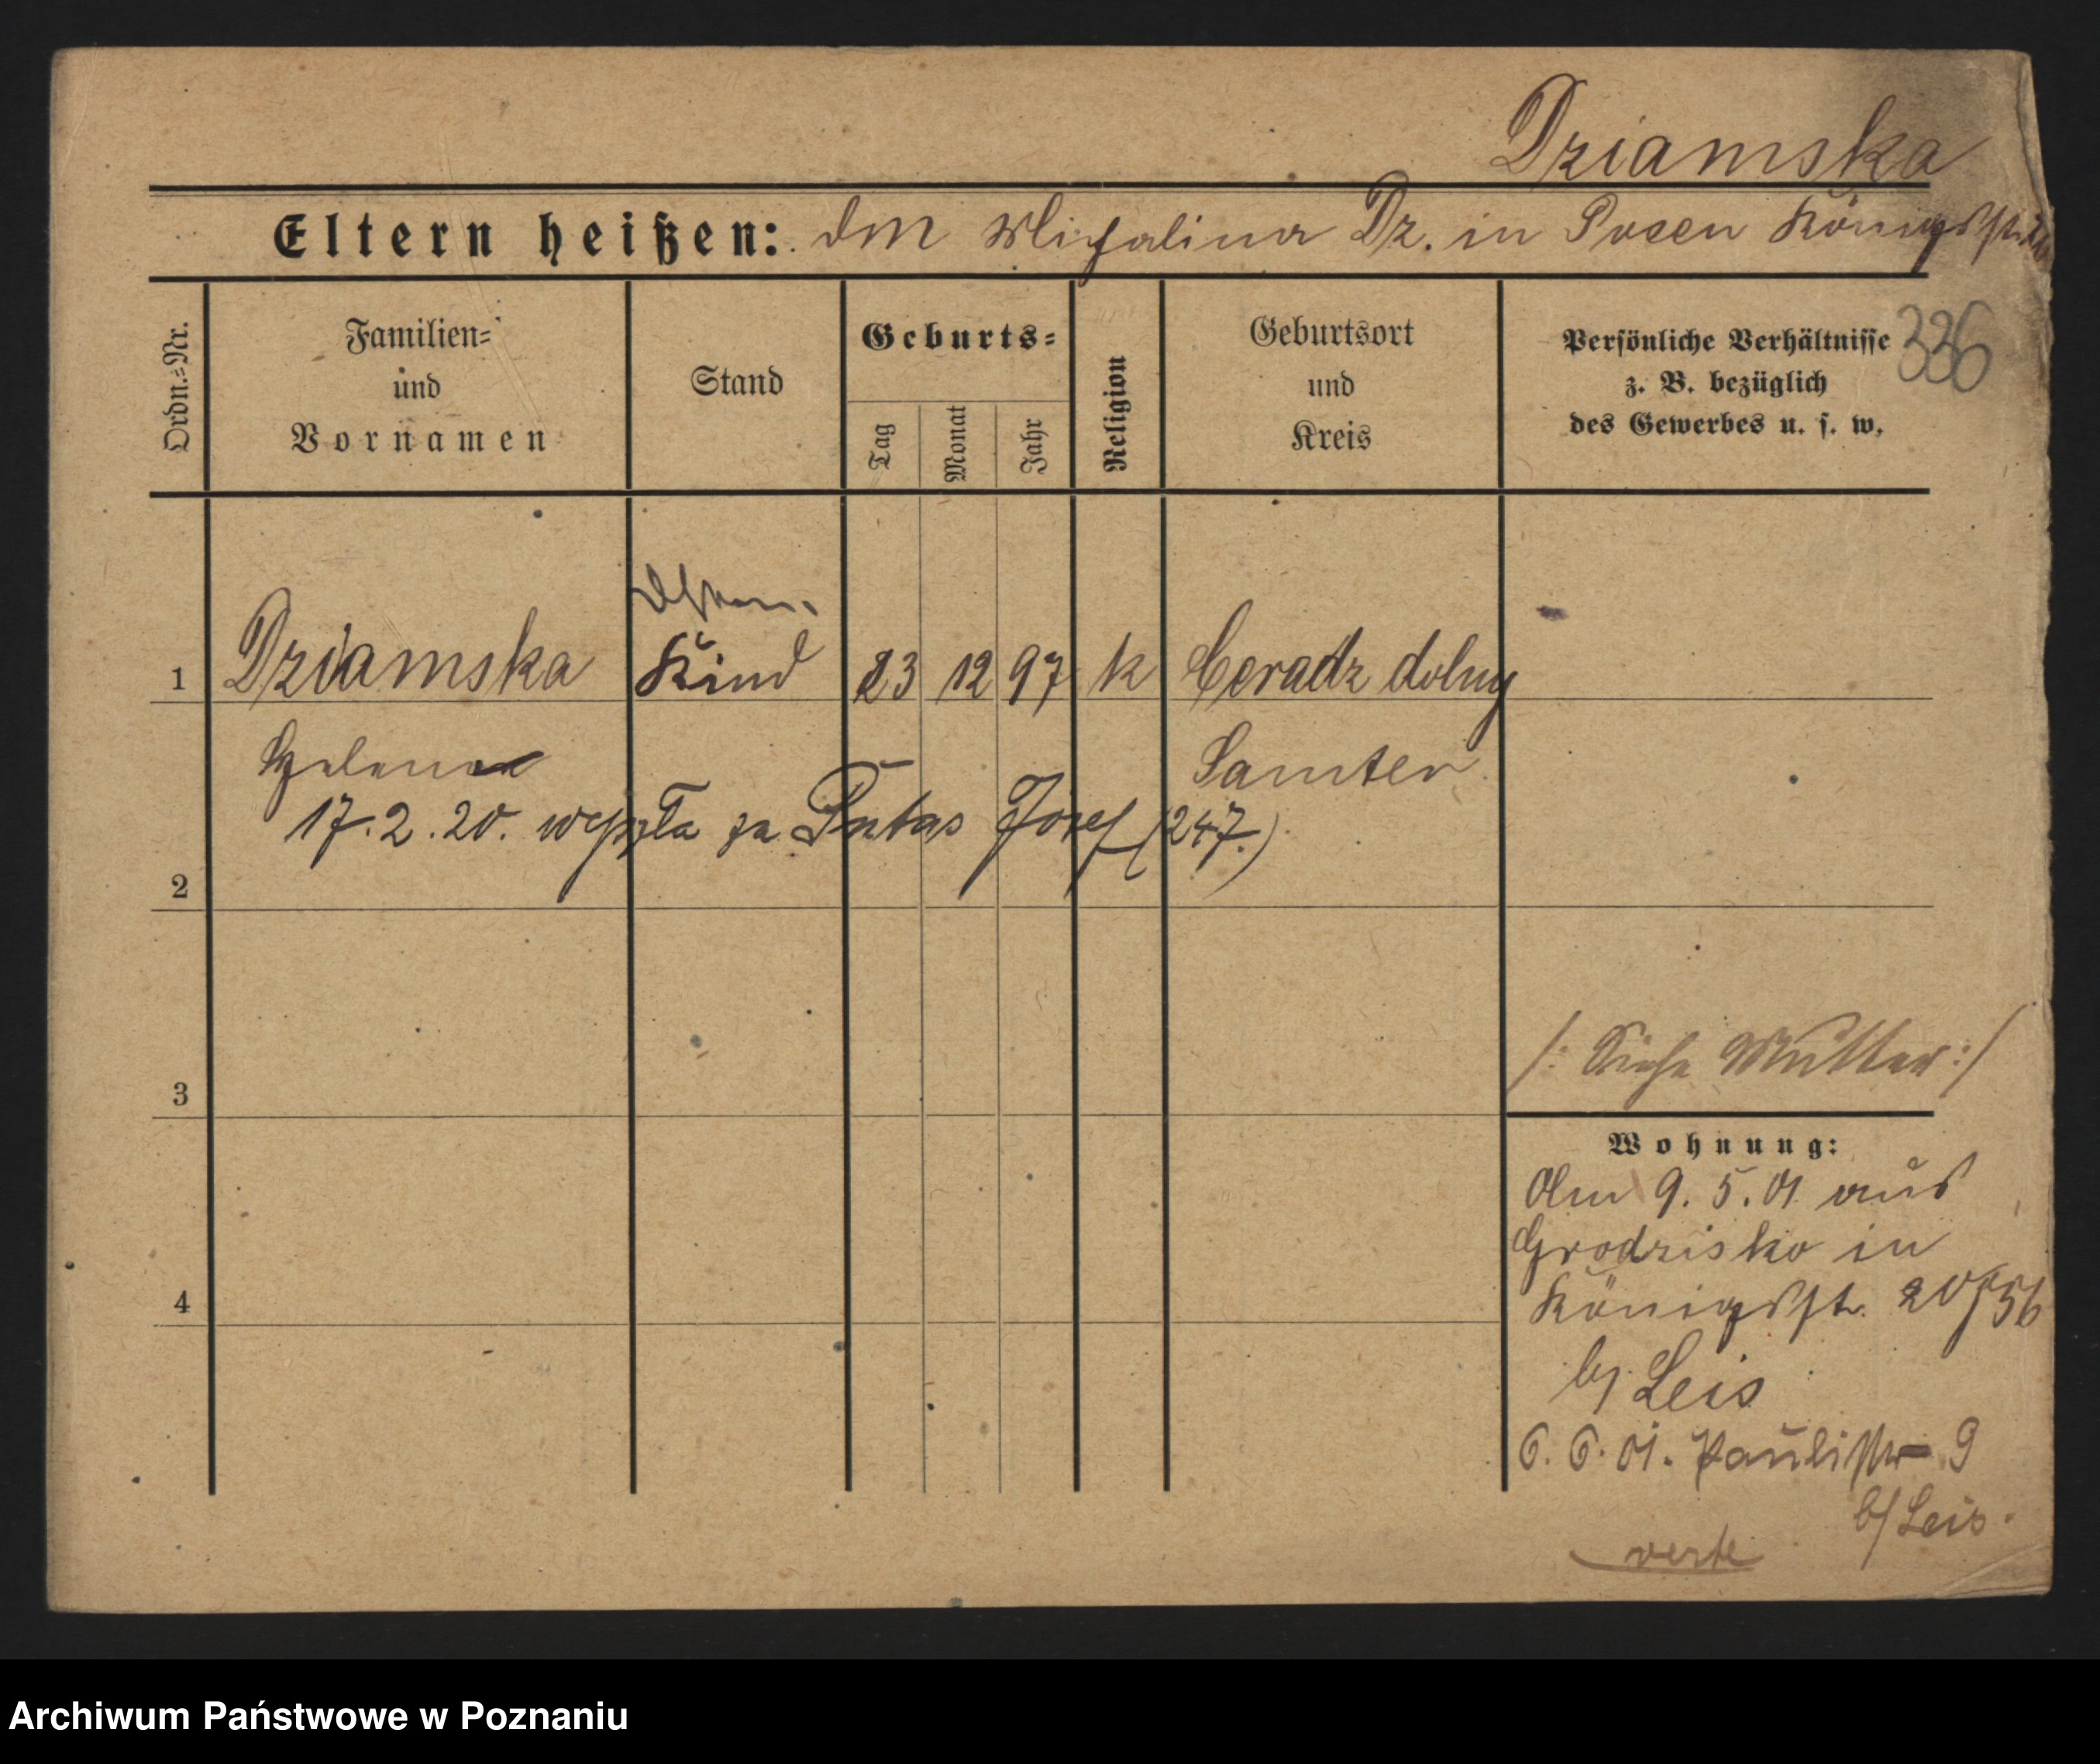 Dziamska
Eltern heißen: Michalina Dz. in Posen Königsstr.
336
Ordn.-Nr.
Familien-
und
Vornamen
Stand
Geburts-
Tag
Monat
Jahr
Religion
Geburtsort
und
Kreis
Persönliche Verhältnisse
z. B. bezüglich
des Gewerbes u. s. w.
1 Dziamska Kind 23 12 97 k Ceradz dolny
Helena Samter
17.2.20. wyszła za Józef (247.)
2
3
/: Siehe Mutter :/
Wohnung:
Am 9. 5. 01 aus
Grodzisko in
4
Königsstr. 20/56
b/ Leis
6. 6. 01. Paulistr 9
b/ Leis.
verte
Archiwum Państwowe w Poznaniu